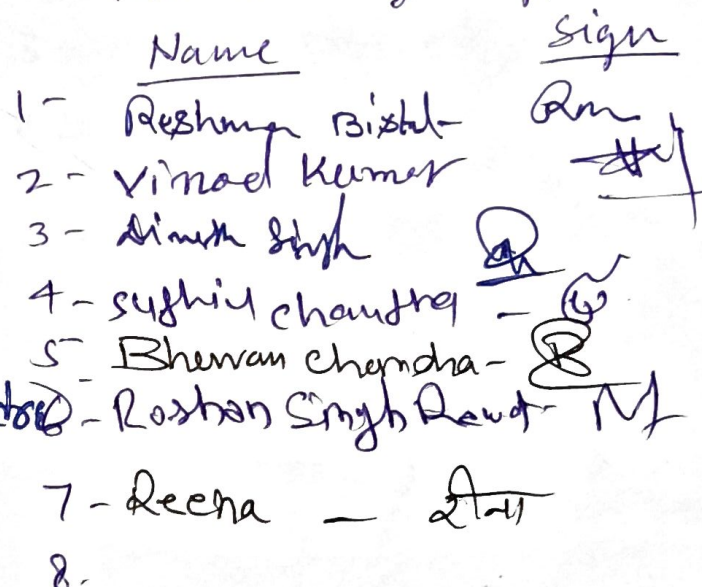 Name Sign
1- Reshma Bisht Rm
2- Vinod Kumar
3- Dinesh Singh
4- Sushil Chandra -
5- Bhuwan Chandra - B
6- Roshan Singh Rawat -
7- Reena - रीना
8.